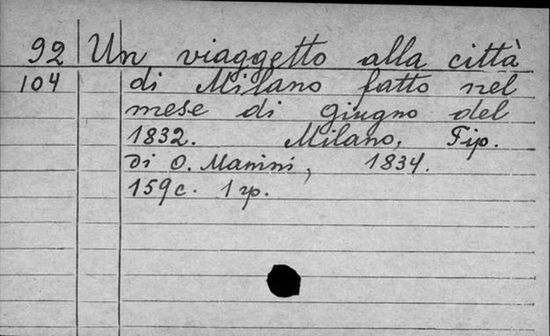 92 Un viaggetto alla città
104 di Milano fatto nel
mese di giugno del
1832. Milano, Tip.
di O. Manini, 1834.
159 c. 1 гр.